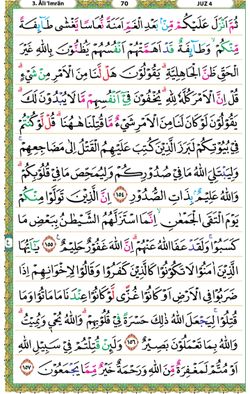 3. Āli 'Imrān 70 JUZ 4
ثُمَّ أَنْزَلَ عَلَيْكُمْ مِنْ بَعْدِ الْغَمِّ أَمَنَةً نُعَاسًا يَغْشَى طَائِفَةً
مِنْكُمْ وَطَائِفَةٌ قَدْ أَهَمَّتْهُمْ أَنْفُسُهُمْ يَظُنُّونَ بِاللَّهِ غَيْرَ
الْحَقِّ ظَنَّ الْجَاهِلِيَّةِ يَقُولُونَ هَلْ لَنَا مِنَ الْأَمْرِ مِنْ شَيْءٍ
قُلْ إِنَّ الْأَمْرَ كُلَّهُ لِلَّهِ يُخْفُونَ فِي أَنْفُسِهِمْ مَا لَا يُبْدُونَ لَكَ
يَقُولُونَ لَوْ كَانَ لَنَا مِنَ الْأَمْرِ شَيْءٌ مَا قُتِلْنَا هَاهُنَا قُلْ لَوْ كُنْتُمْ
فِي بُيُوتِكُمْ لَبَرَزَ الَّذِينَ كُتِبَ عَلَيْهِمُ الْقَتْلُ إِلَى مَضَاجِعِهِمْ
وَلِيَبْتَلِيَ اللَّهُ مَا فِي صُدُورِكُمْ وَلِيُمَحِّصَ مَا فِي قُلُوبِكُمْ
وَاللَّهُ عَلِيمٌ بِذَاتِ الصُّدُورِ ١٥٤ إِنَّ الَّذِينَ تَوَلَّوْا مِنْكُمْ
يَوْمَ الْتَقَى الْجَمْعَانِ إِنَّمَا اسْتَزَلَّهُمُ الشَّيْطَانُ بِبَعْضِ مَا
كَسَبُوا وَلَقَدْ عَفَا اللَّهُ عَنْهُمْ إِنَّ اللَّهَ غَفُورٌ حَلِيمٌ ١٥٥ يَا أَيُّهَا
الَّذِينَ آمَنُوا لَا تَكُونُوا كَالَّذِينَ كَفَرُوا وَقَالُوا لِإِخْوَانِهِمْ إِذَا
ضَرَبُوا فِي الْأَرْضِ أَوْ كَانُوا غُزًّى لَوْ كَانُوا عِنْدَنَا مَا مَاتُوا وَمَا
قُتِلُوا لِيَجْعَلَ اللَّهُ ذَلِكَ حَسْرَةً فِي قُلُوبِهِمْ وَاللَّهُ يُحْيِي وَيُمِيتُ
وَاللَّهُ بِمَا تَعْمَلُونَ بَصِيرٌ ١٥٦ وَلَئِنْ قُتِلْتُمْ فِي سَبِيلِ اللَّهِ
أَوْ مُتُّمْ لَمَغْفِرَةٌ مِنَ اللَّهِ وَرَحْمَةٌ خَيْرٌ مِمَّا يَجْمَعُونَ ١٥٧